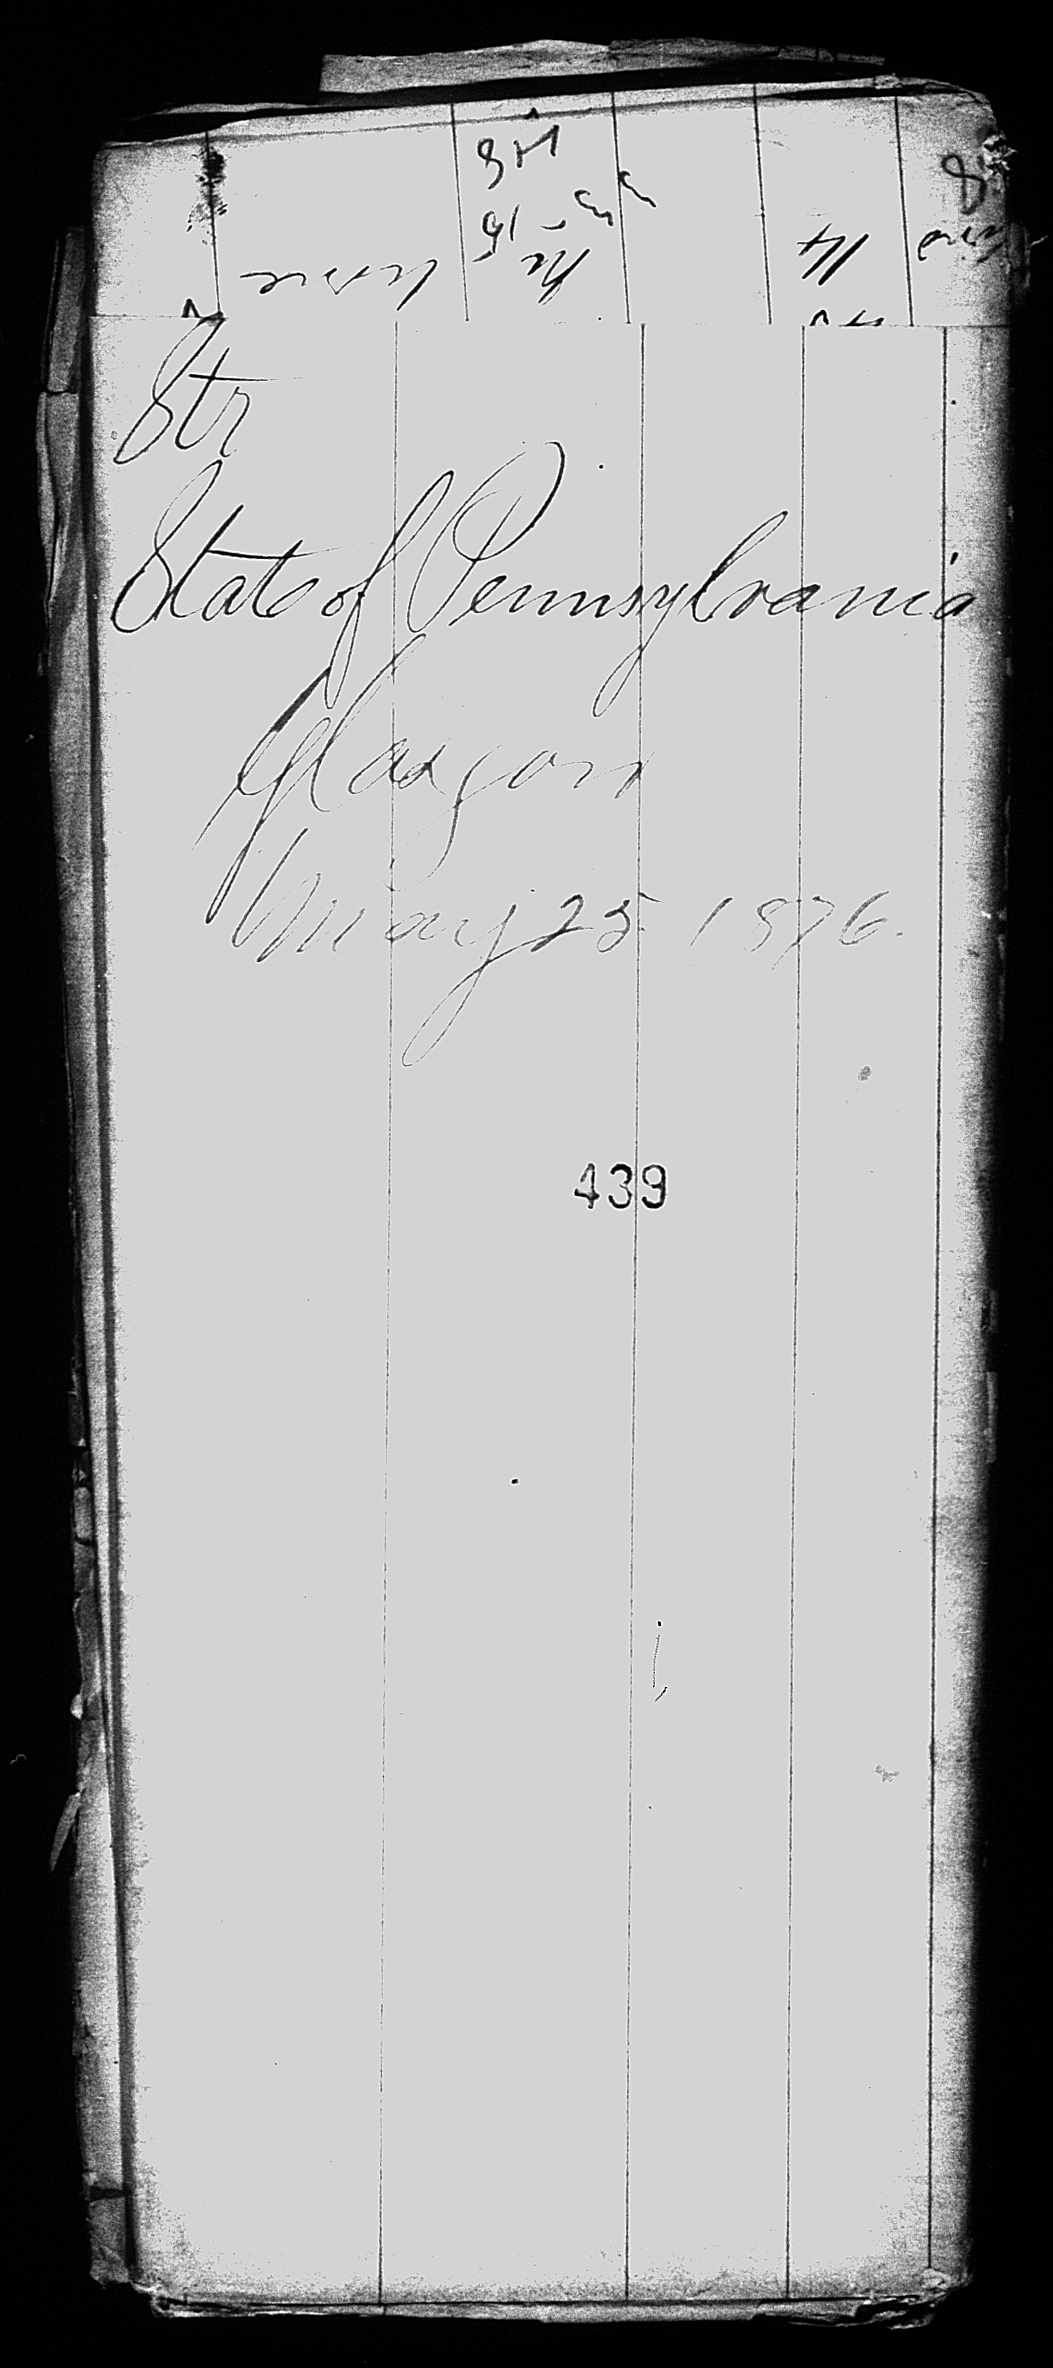 Str
State of Pennsylvania
Glasgow
May 25 1876.
439